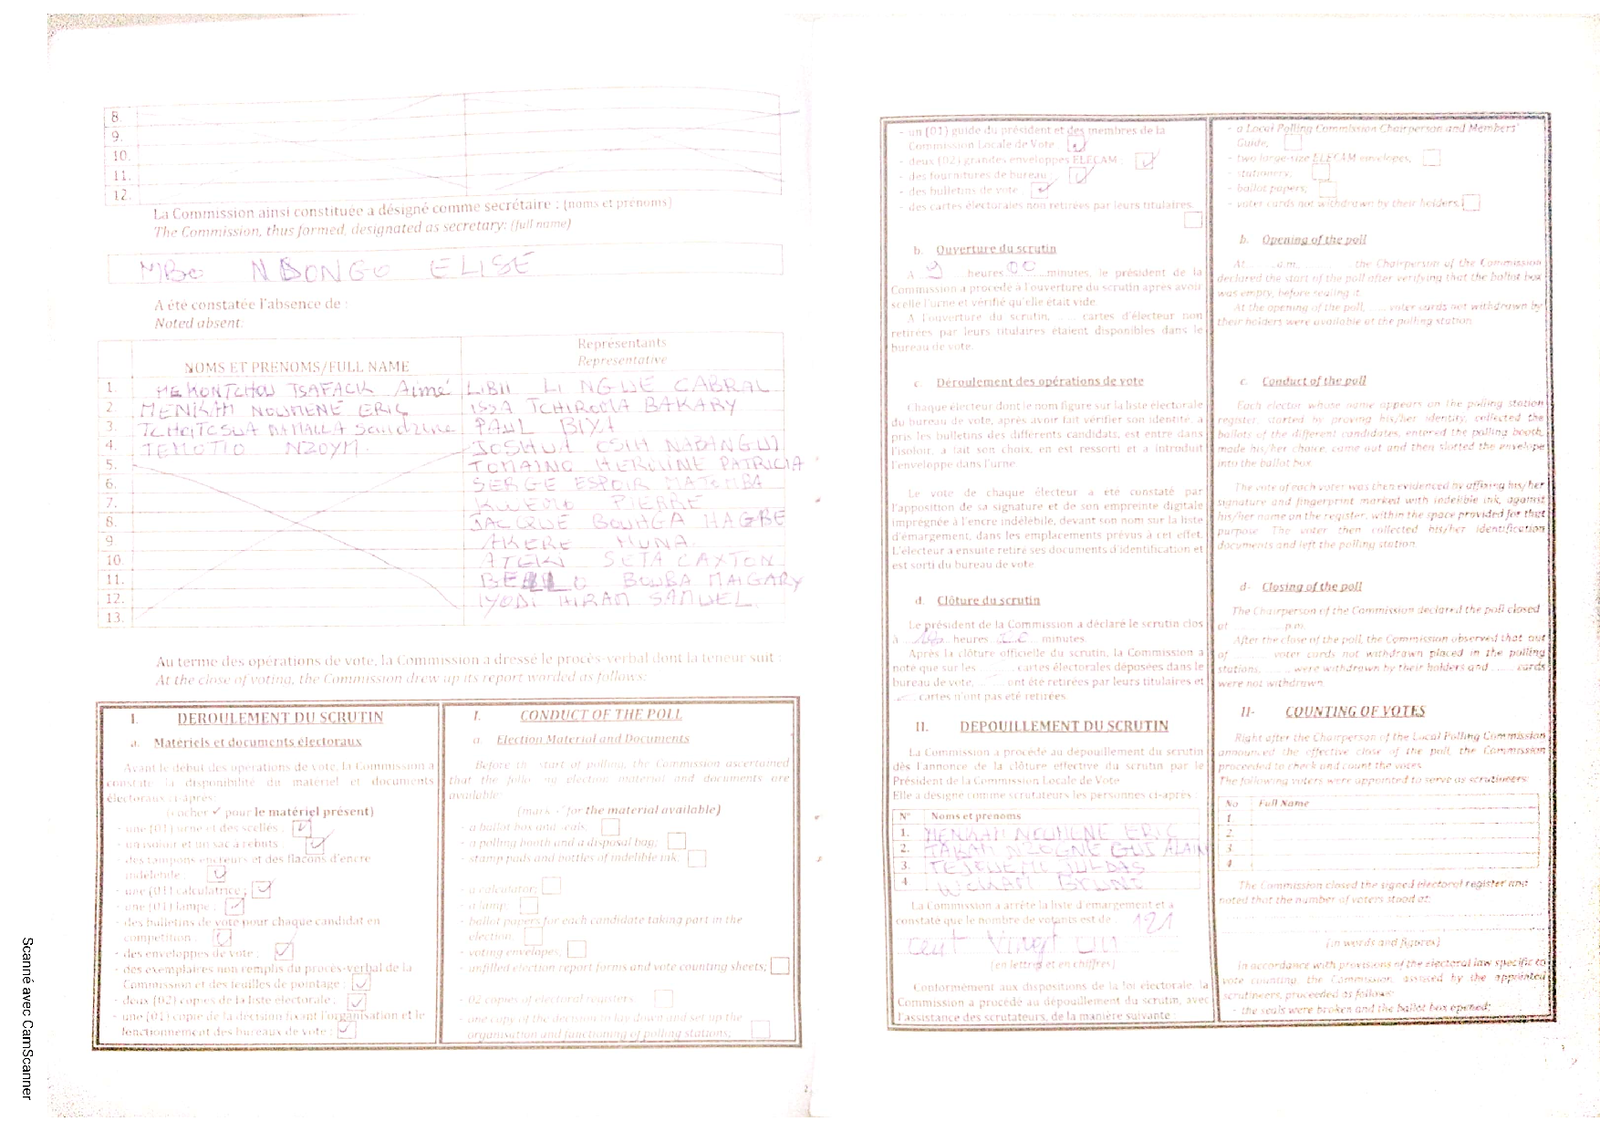 8.
9.
10.
11.
12.
La Commission ainsi constituée a désigné comme secrétaire : (noms et prénoms)
The Commission, thus formed, designated as secretary: (full name)
MBO NDONGO ELISE
A été constatée l'absence de :
Noted absent:
NOMS ET PRENOMS/FULL NAME
Représentants
Representative
1. MEKONTCHOU TSAFACK Aimé LIBII LI NGUE CABRAL
2. MENKAM NOUMENE ERIC ISSA TCHIROMA BAKARY
3. PAUL BIYA
4. TEMOTIO NZOYM JOSHUA OSIH NABANGUI
5. TOMAINO HERMINE PATRICIA
6. SERGE ESPOIR MATOMBA
7. KWEMO PIERRE
8. JACQUE BOUHGA HAGBE
9 AKERE MUNA
10. ATEKI SETA CAXTON
11. BELLO BOUBA MAIGARY
12. IYODI HIRAM SAMUEL
13.
Au terme des opérations de vote, la Commission a dressé le procès-verbal dont la teneur suit :
At the close of voting, the Commission drew up its report worded as follows:
I. DEROULEMENT DU SCRUTIN
a. Matériels et documents électoraux
Avant le début des opérations de vote, la Commission a
constaté la disponibilité du matériel et documents
électoraux ci-après:
(cocher ✓ pour le matériel présent)
- une (01) urne et des scellés : ✓
- un isoloir et un sac à rebuts : ✓
- des tampons encreurs et des flacons d'encre
indélébile : ✓
- une (01) calculatrice : ✓
- une (01) lampe : ✓
- des bulletins de vote pour chaque candidat en
compétition : ✓
- des enveloppes de vote : ✓
- des exemplaires non remplis du procès-verbal de la
Commission et des feuilles de pointage : ✓
- deux (02) copies de la liste électorale : ✓
- une (01) copie de la décision fixant l'organisation et le
fonctionnement des bureaux de vote : ✓
I. CONDUCT OF THE POLL
a. Election Material and Documents
Before the start of polling, the Commission ascertained
that the following election material and documents are
available:
(mark ✓ for the material available)
- a ballot box and seals:
- a polling booth and a disposal bag;
- stamp pads and bottles of indelible ink:
- a calculator;
- a lamp;
- ballot papers for each candidate taking part in the
election,
- voting envelopes;
- unfilled election report forms and vote counting sheets;
- 02 copies of electoral registers
- one copy of the decision to lay down and set up the
organisation and functioning of polling stations.
- un (01) guide du président et des membres de la
Commission Locale de Vote ✓
- deux (02) grandes enveloppes ELECAM : ✓
- des fournitures de bureau : ✓
- des bulletins de vote ✓
- des cartes électorales non retirées par leurs titulaires.
b. Ouverture du scrutin
A 9 heures 00 minutes, le président de la
Commission a procédé à l'ouverture du scrutin après avoir
scellé l'urne et vérifié qu'elle était vide.
A l'ouverture du scrutin, .... cartes d'électeur non
retirées par leurs titulaires étaient disponibles dans le
bureau de vote.
c. Déroulement des opérations de vote
Chaque électeur dont le nom figure sur la liste électorale
du bureau de vote, après avoir fait vérifier son identité, a
pris les bulletins des différents candidats, est entré dans
l'isoloir, a fait son choix, en est ressorti et a introduit
l'enveloppe dans l'urne.
Le vote de chaque électeur a été constaté par
l'apposition de sa signature et de son empreinte digitale
imprégnée à l'encre indélébile, devant son nom sur la liste
d'émargement, dans les emplacements prévus à cet effet.
L'électeur a ensuite retiré ses documents d'identification et
est sorti du bureau de vote
d. Clôture du scrutin
Le président de la Commission a déclaré le scrutin clos
à heures minutes
Après la clôture officielle du scrutin, la Commission a
noté que sur les cartes électorales déposées dans le
bureau de vote, ont été retirées par leurs titulaires et
cartes n'ont pas été retirées
II. DEPOUILLEMENT DU SCRUTIN
La Commission a procédé au dépouillement du scrutin
dès l'annonce de la clôture effective du scrutin par le
Président de la Commission Locale de Vote
Elle a désigné comme scrutateurs les personnes ci-après :
N° Noms et prénoms
1. MENKAM NOUMENE ERIC
2. TAKAM NZOGNE GUS ALAIN
3.
4
La Commission arrête la liste d'émargement et a
constaté que le nombre de votants est de : 121
cent vingt un
(en lettres et en chiffres)
Conformément aux dispositions de la loi électorale, la
Commission a procédé au dépouillement du scrutin, avec
l'assistance des scrutateurs, de la manière suivante :
- a Local Polling Commission Chairperson and Members'
Guide,
- two large-size ELECAM envelopes,
- stationery,
- ballot papers;
- voter cards not withdrawn by their holders.
b. Opening of the poll
At ....... a.m. ........, the Chairperson of the Commission
declared the start of the poll after verifying that the ballot box
was empty, before sealing it.
At the opening of the poll, ..... voter cards not withdrawn by
their holders were available at the polling station.
c. Conduct of the poll
Each elector whose name appears on the polling station
register, started by proving his/her identity, collected the
ballots of the different candidates, entered the polling booth,
made his/her choice, came out and then slotted the envelope
into the ballot box
The vote of each voter was then evidenced by affixing his/her
signature and fingerprint marked with indelible ink, against
his/her name on the register, within the space provided for that
purpose. The voter then collected his/her identification
documents and left the polling station.
d- Closing of the poll
The Chairperson of the Commission declared the poll closed
at p.m.
After the close of the poll, the Commission observed that out
of voter cards not withdrawn placed in the polling
stations, were withdrawn by their holders and cards
were not withdrawn.
II- COUNTING OF VOTES
Right after the Chairperson of the Local Polling Commission
announced the effective close of the poll, the Commission
proceeded to check and count the votes
The following voters were appointed to serve as scrutineers:
No Full Name
1.
2.
3.
4
The Commission closed the signed electoral register and
noted that the number of voters stood at:
(in words and figures)
In accordance with provisions of the electoral law specific to
vote counting, the Commission, assisted by the appointed
scrutineers, proceeded as follows:
- the seals were broken and the ballot box opened;
Scanné avec CamScanner